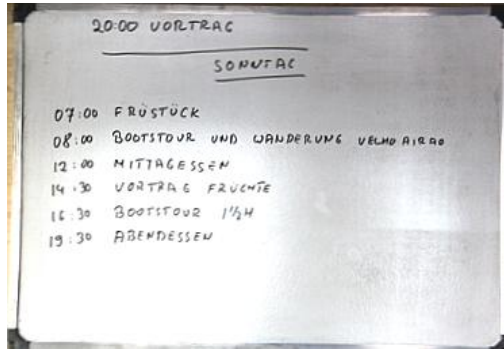 20:00 VORTRAG
SONNTAG
07:00 FRÜSTÜCK
08:00 BOOTSTOUR UND WANDERUNG VELHO AIRAO
12:00 MITTAGESSEN
14:30 VORTRAG FRÜCHTE
16:30 BOOTSTOUR 1½H
19:30 ABENDESSEN